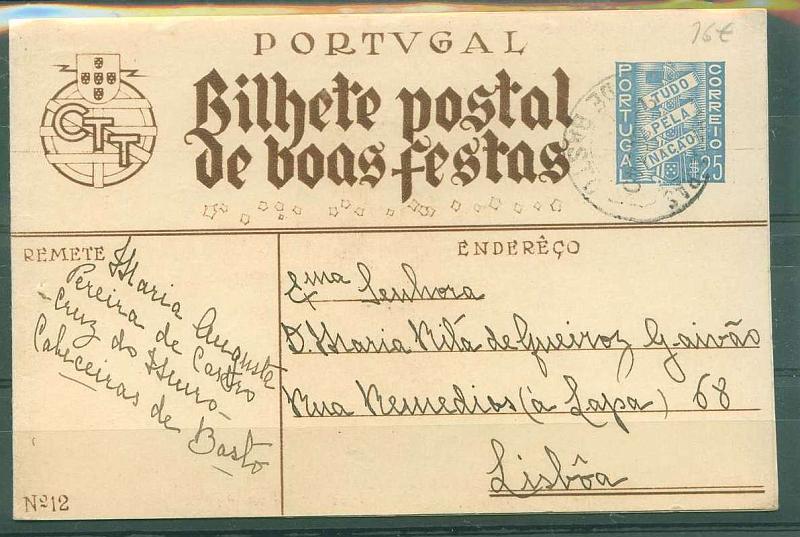 PORTVGAL
16€
CTT
Bilhete postal
de boas festas
PORTUGAL
CORREIO
TUDO
PELA
NAÇÃO
$25
REMETE
Maria Augusta
Pereira de Castro
Cruz do Muro -
Cabeceiras de Basto
Nº12
ENDERÊÇO
Exma Senhora
D. Maria Rita de Queiroz Gaivão
Rua Remedios (à Lapa) 68
Lisbôa